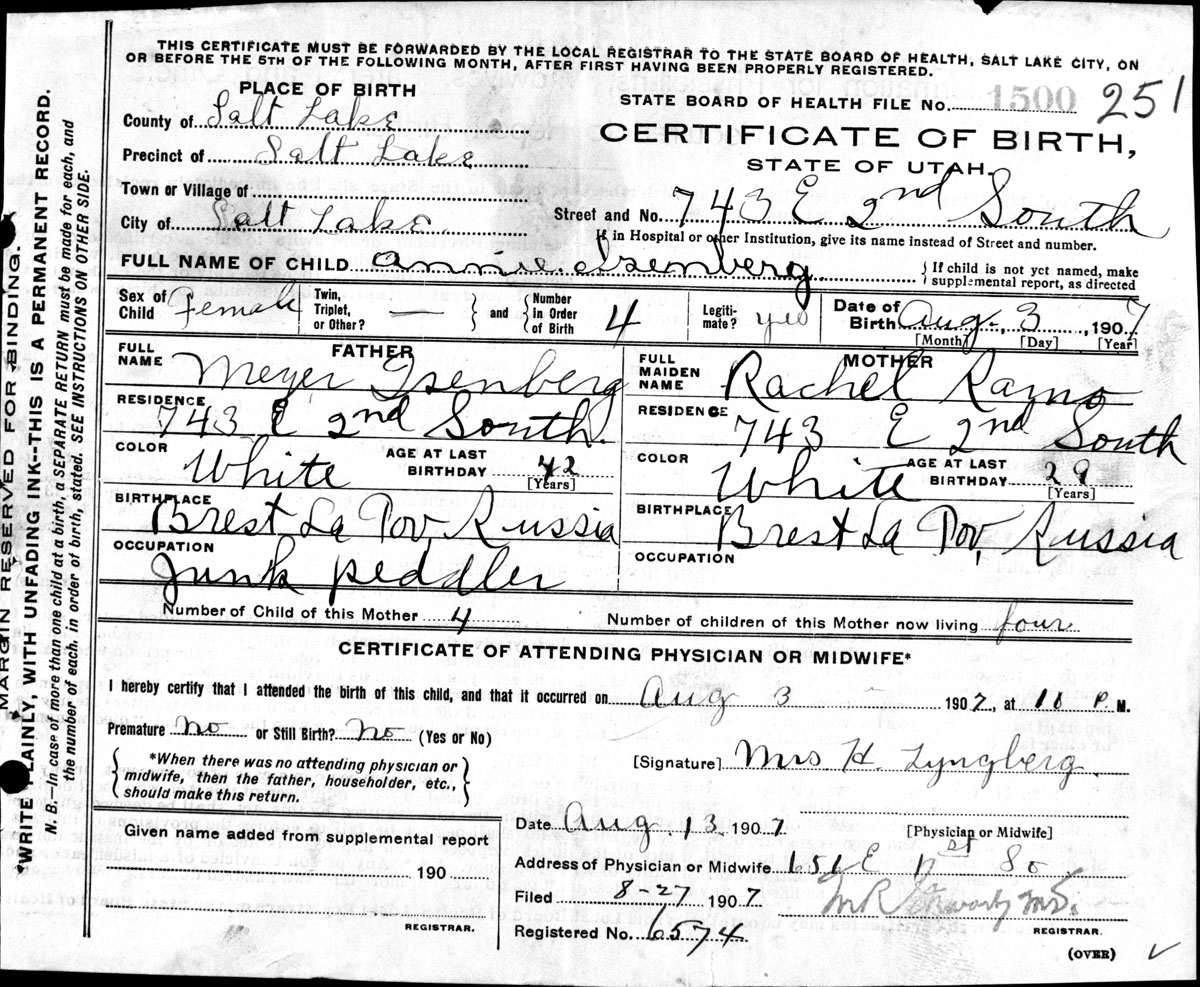 THIS CERTIFICATE MUST BE FORWARDED BY THE LOCAL REGISTRAR TO THE STATE BOARD OF HEALTH, SALT LAKE CITY, ON
OR BEFORE THE 5TH OF THE FOLLOWING MONTH, AFTER FIRST HAVING BEEN PROPERLY REGISTERED.
PLACE OF BIRTH
County of Salt Lake
Precinct of Salt Lake
Town or Village of
City of Salt Lake
STATE BOARD OF HEALTH FILE No. 1500 251
CERTIFICATE OF BIRTH,
STATE OF UTAH.
Street and No. 743 E 2nd South
If in Hospital or other Institution, give its name instead of Street and number.
FULL NAME OF CHILD Annie Isenberg
If child is not yet named, make
supplemental report, as directed
Sex of Child Female
Twin, Triplet, or Other? —
and Number in Order of Birth 4
Legiti-mate? yes
Date of Birth Aug. 3, 1907
[Month] [Day] [Year]
FATHER
FULL NAME Meyer Isenberg
RESIDENCE 743 E 2nd South.
COLOR White
AGE AT LAST BIRTHDAY 42
[Years]
BIRTHPLACE Brest La Pov, Russia
OCCUPATION Junk peddler
MOTHER
FULL MAIDEN NAME Rachel
RESIDENCE 743 E 2nd South
COLOR White
AGE AT LAST BIRTHDAY 29
[Years]
BIRTHPLACE Brest La Pov, Russia
OCCUPATION
Number of Child of this Mother 4
Number of children of this Mother now living four
CERTIFICATE OF ATTENDING PHYSICIAN OR MIDWIFE*
I hereby certify that I attended the birth of this child, and that it occurred on Aug 3 1907, at 10 P.M.
Premature No or Still Birth? No (Yes or No)
*When there was no attending physician or
midwife, then the father, householder, etc.,
should make this return.
[Signature] Mrs H. Lyngberg.
Given name added from supplemental report
190
REGISTRAR.
Date Aug. 13 1907
[Physician or Midwife]
Address of Physician or Midwife 651 E So
Filed 8-27 1907
Registered No. 6574
REGISTRAR.
(OVER)
MARGIN RESERVED FOR BINDING.
*WRITE PLAINLY, WITH UNFADING INK--THIS IS A PERMANENT RECORD.
N. B.—In case of more than one child at a birth, a SEPARATE RETURN must be made for each, and
the number of each, in order of birth, stated. SEE INSTRUCTIONS ON OTHER SIDE.